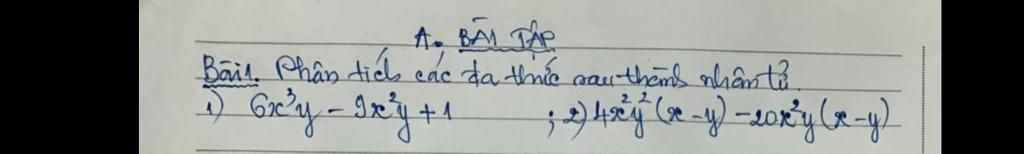 A. BÀI TẬP
Bài 1. Phân tích các đa thức sau thành nhân tử.
1) 6x³y - 9x²y + 1 ; 2) 4x²y²(x - y) - 20x²y(x - y)